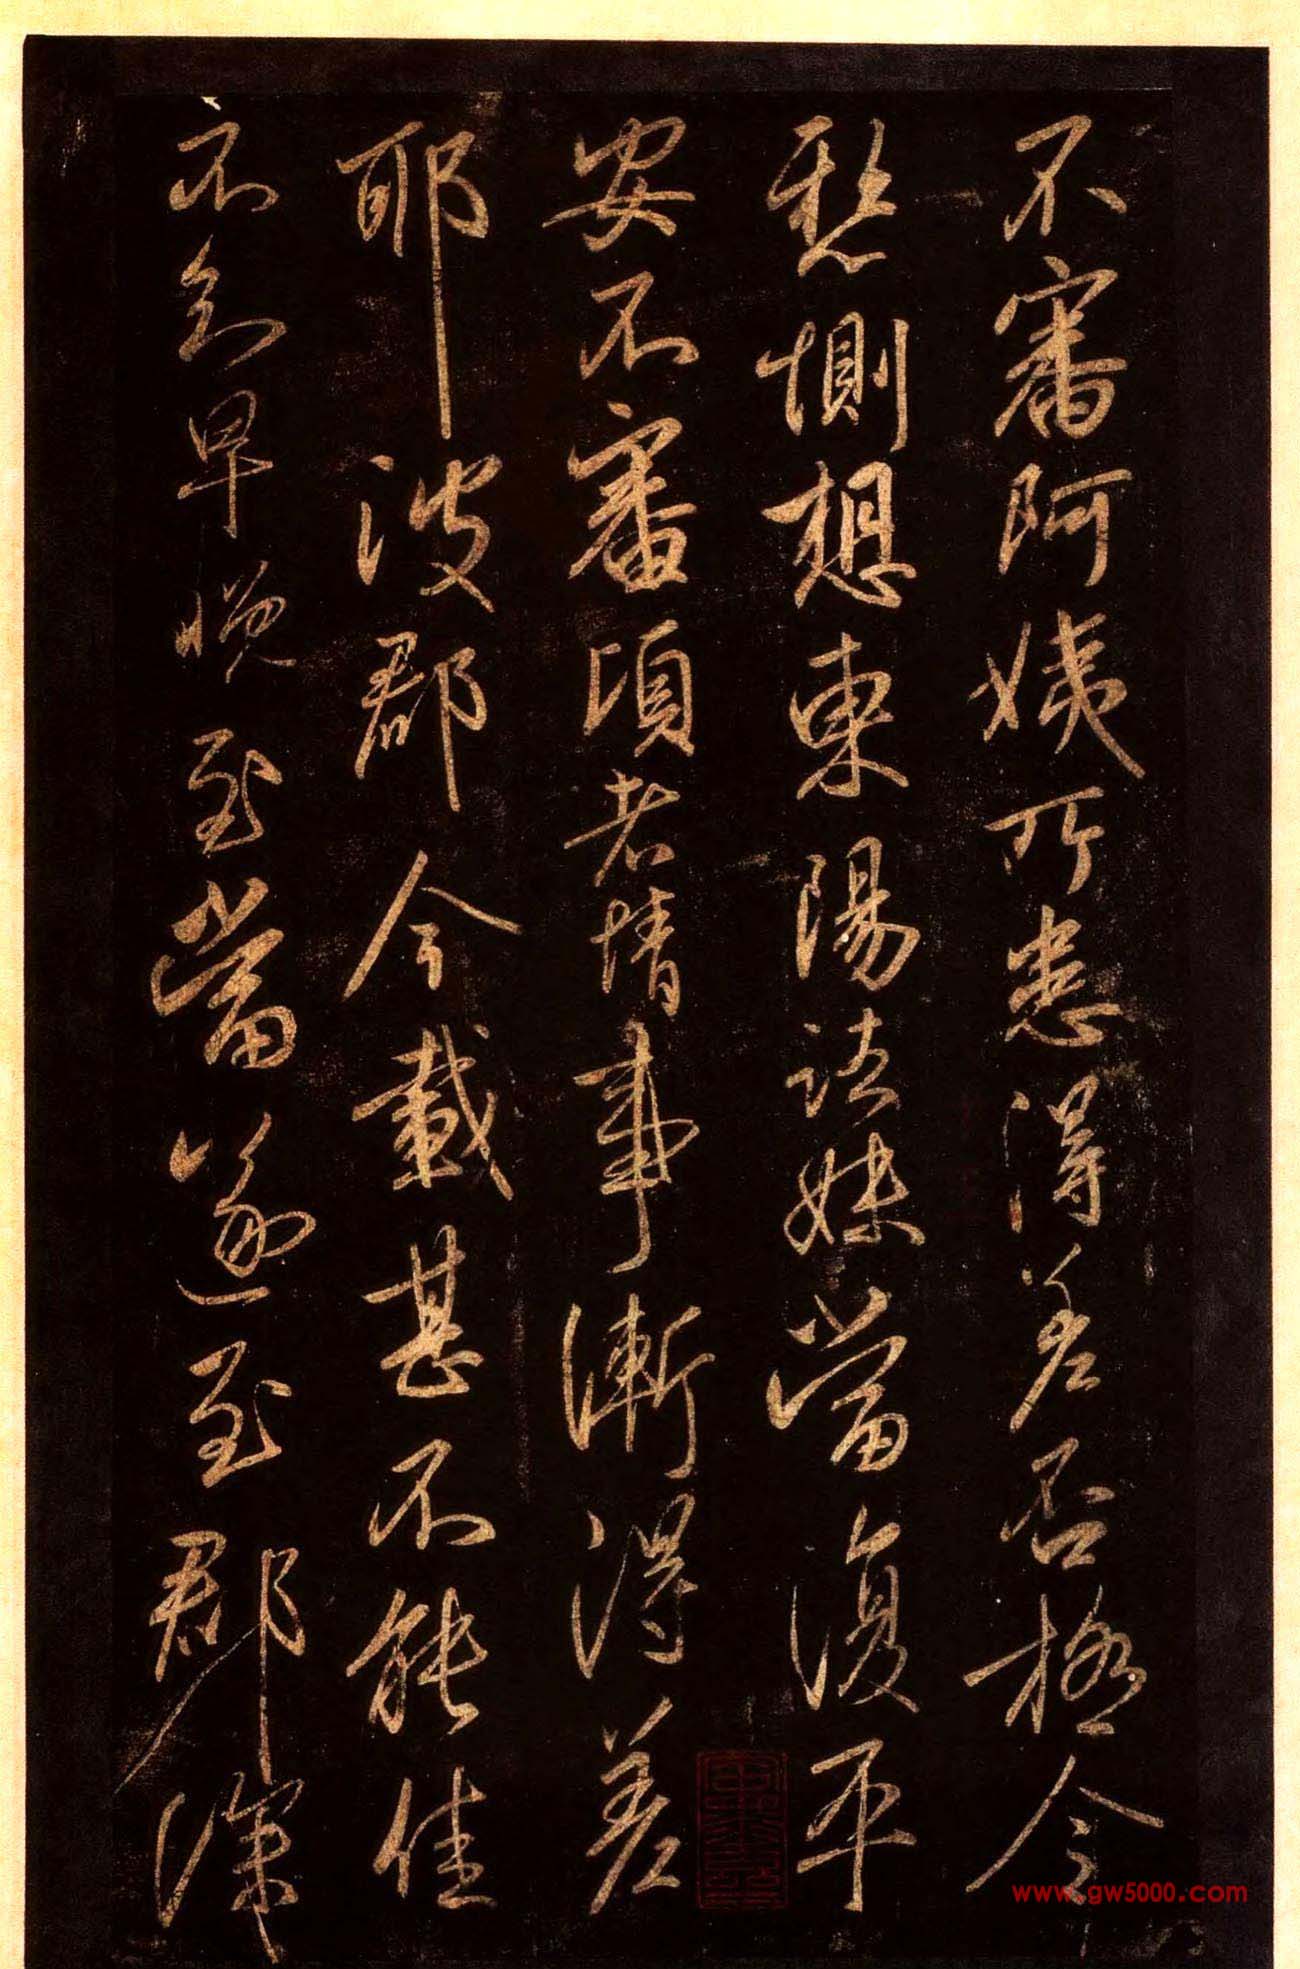 不審阿姨所患得差否極令
愁惻想東陽諸妹當復平
安不審頃者情事漸得差
耶彼郡今載甚不能佳
不知早晚至當遂至郡深
www.gw5000.com